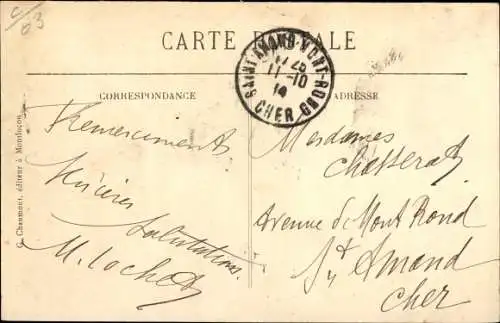 C/03
CARTE POSTALE
SAINT-AMAND-MONT-ROND
17 25
11-10
14
CHER
CORRESPONDANCE
ADRESSE
Chaumont, éditeur à Montluçon
Remerciements
Sincères
Salutations
M. Lochet
Mesdames
Chasserat
Avenue de Mont Rond
St Amand
Cher